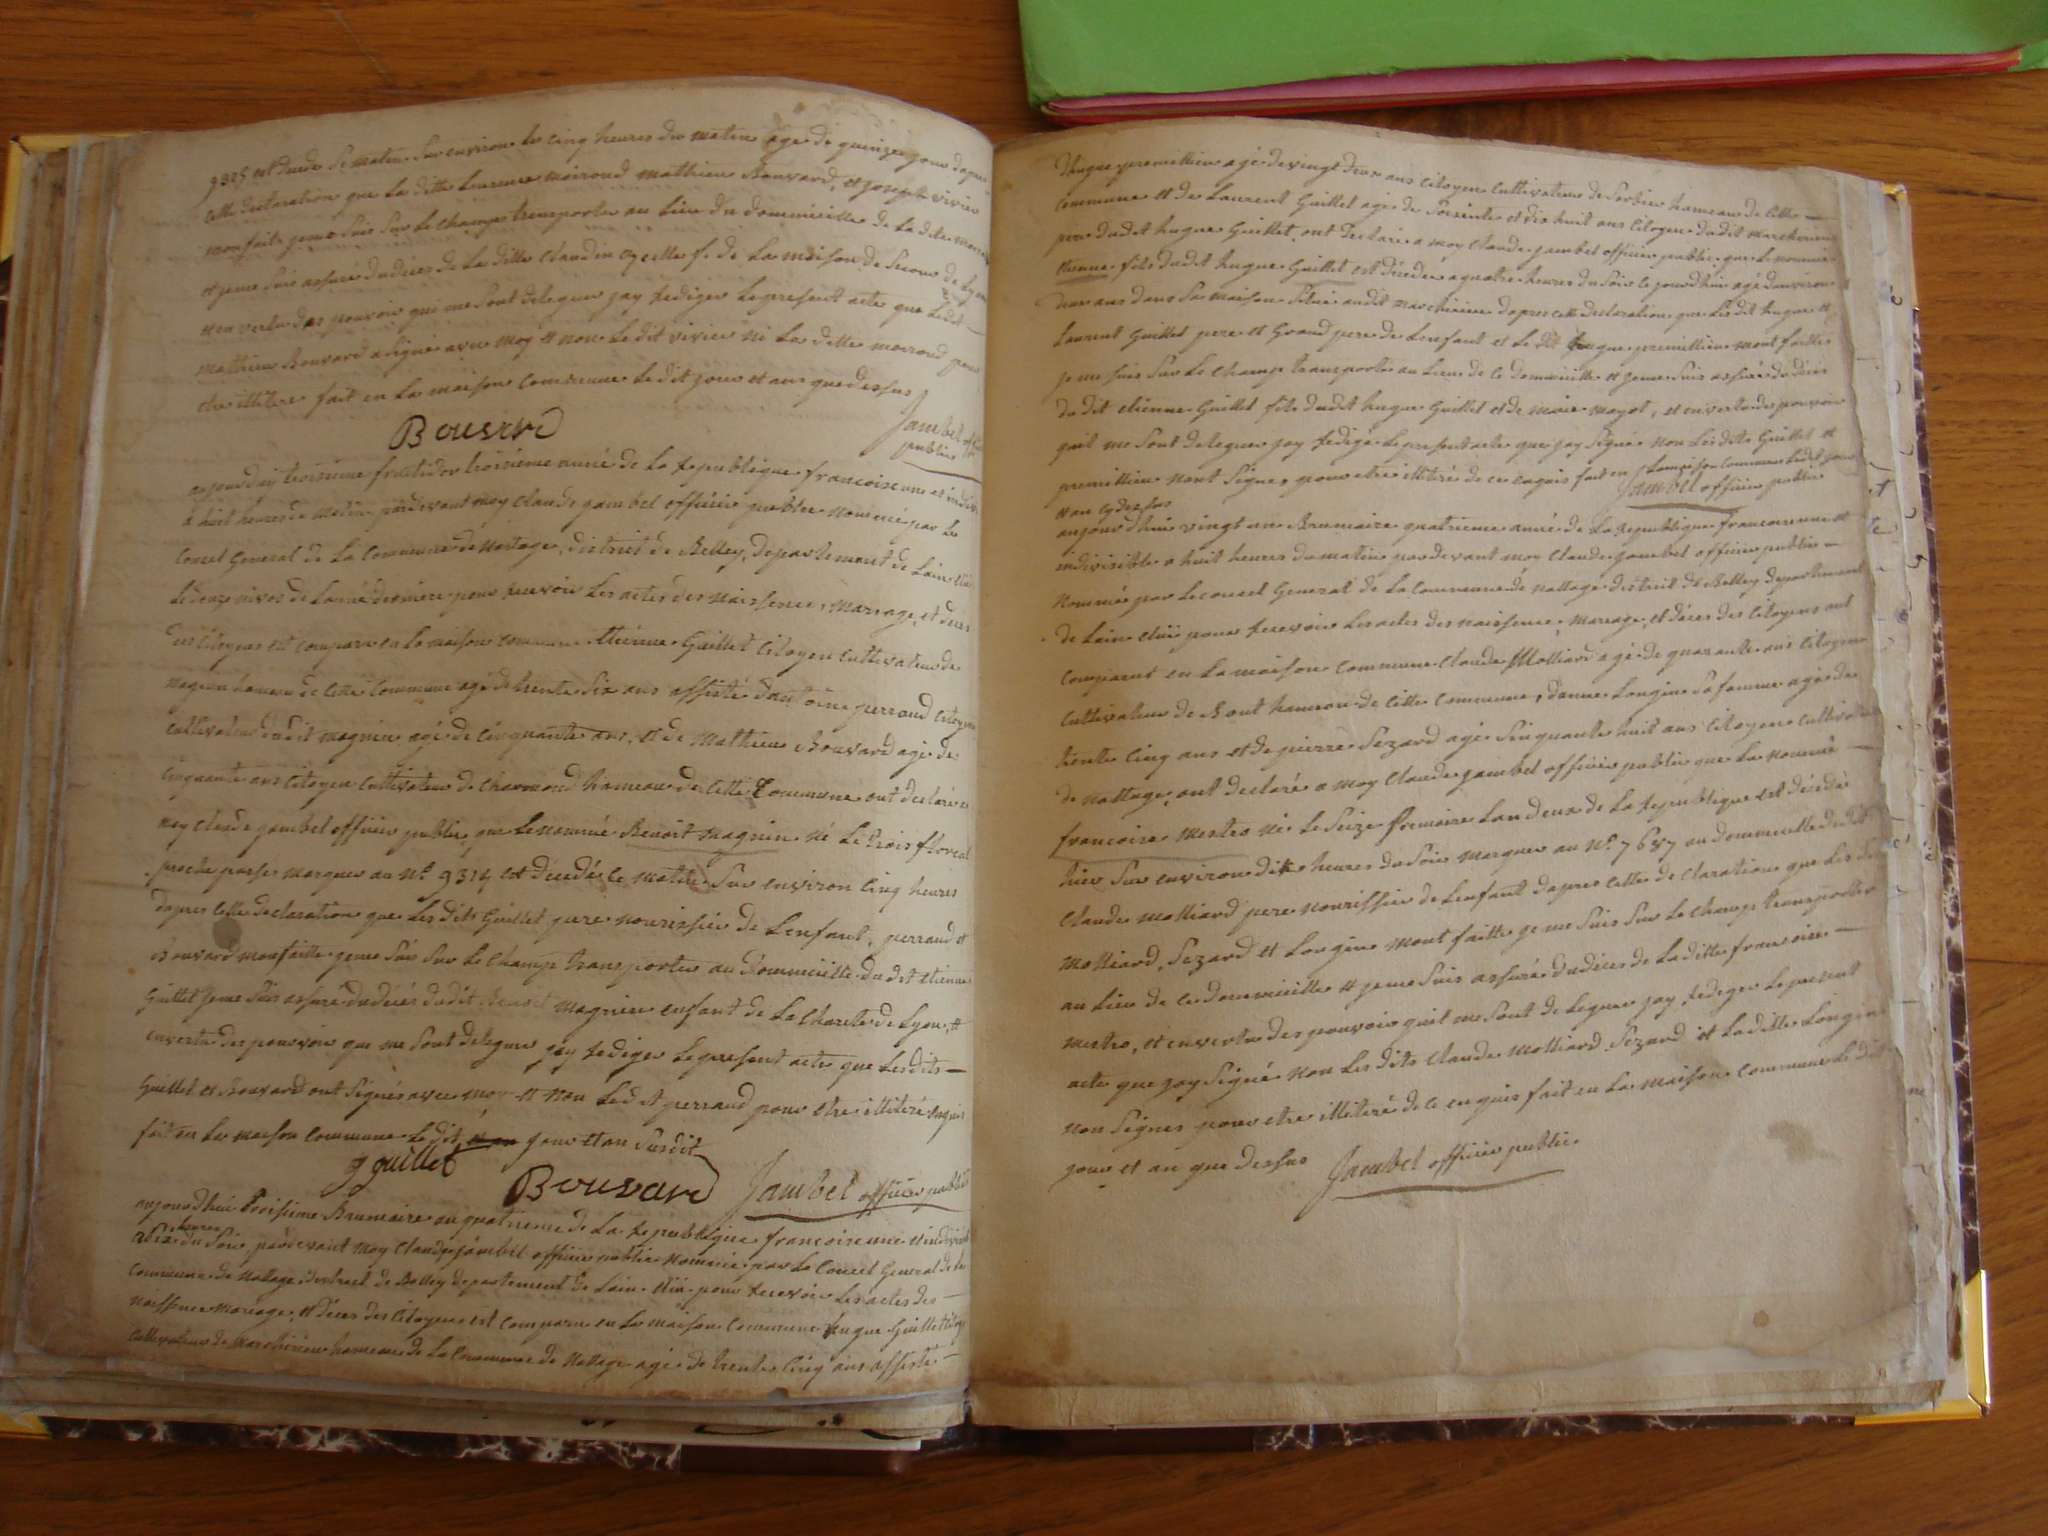 cette declaration que la ditte Laurence moiroud mathieu Bouvard, et joseph vivier
mon faite je me suis sur le champ transporter au lieu du dommicille de la dite moiroud
et jeme suis assuré du déces de la ditte Claudin f. de la maison de
et en vertu des pouvoir qui me sont deleguer jay rediger le present acte que ledit
mathieu Bouvard a signé avec moy et non le dit vivier ni la ditte moiroud pour
etre illitere fait en la maison commune le dit jour et ans que dessus
Bouvard
Jambel
public
troisieme fructidor troisieme anné de la republique francoise une et indivi
a huit heures du matin pardevant moy Claude jambel officier public nommé par le
Conseil General de la Commune de Nattage, district de Belley, departement de Lain
nivos de lanné derniere pour recevoir les actes des naissences, mariage, et deces
des Citoyens est comparu en la maison commune Etienne Guillet Citoyen cultivateur de
hameau de cette Commune agé de trente six ans assisté dantoine perraud Citoyen
cultivateur dudit magnin agé de cinquante ans, et de Mathieu Bouvard agé de
Cinquante ans Citoyen Cultivateur de Charmond hameau de cette Commune ont declaré a
moy Claude jambel officier public que le nommé Benoit magnin né le trois floreal
proche passer marquer au N.º 9314 est décedé ce matin sur environ cinq heures
dapres cette declaration que les dits Guillet pere nourissier de Lenfant, perraud et
Bouvard mon faitte jeme suis sur le champ transporter au Dommicille du dit etienne
Guillet jeme suis assuré du décés dudit Benoit magnin enfant de la Charite de Lyon, et
en vertu des pouvoir que me sont deleguer jay rediger le present acte que les dits
Guillet et Bouvard ont signés avec moy et non le dit perraud pour etre illiteré
fait en la maison Commune le dit jour et an susdit
guillet
Bouvard
Jambel officier public
aujourdhui troisieme Brumaire an quatrieme de la republique francoise une et indivisi
heures
du soir, pardevant moy Claude jambel officier public nommé par le Conseil General de la
commune de Nattage district de Belley departement de Lain pour recevoir les actes des
naissence mariage, et déces des Citoyens est comparu en la maison Commune hugue Guillet
cultivateur de hameau de la Commune de Nattage agé de trente cinq ans assisté
hugue premillieu agé de vingt deux ans Citoyen Cultivateur de Sorbier hameau de cette
commune et de Laurent Guillet agé de soixente et dix huit ans Citoyen dudit
pere dudit hugue Guillet, ont declaré a moy Claude jambel officier public que le nommé
etienne fils dudit hugue Guillet est décedé a quatre heures du soir le jourdhui agé denviron
deux ans dans sa maison situé audit dapres cette declaration que les dit hugue et
Laurent Guillet pere et Grand pere de Lenfant et le dit hugue premillieu mont faitte
je me suis sur le champ transporter au lieu de ce dommicille et jeme suis assuré du déces
du dit etienne Guillet fils dudit hugue Guillet et de marie moyot, et en vertu des pouvoir
quil me sont deleguer jay redigé le present acte que jay signé non les dits Guillet et
premillieu nont signes pour etre illiteré de ce enquis fait en la maison commune ledit jour
et an cy dessus
Jambel officier public
aujourdhui vingt un Brumaire quatrieme anné de la republique francoise une et
indivisible a huit heures du matin pardevant moy Claude jambel officier public
Nommée par le conseil General de la Commune de nattage district de Belley departement
de Lain pour recevoir les actes des naissence, mariage, et déces des Citoyens ont
comparut en la maison commune Claude Molliard agé de quarante ans Citoyen
Cultivateur de Bout hameau de cette commune, danne Longin sa famme agé de
trente cinq ans et de pierre Sezard agé sinquante huit ans Citoyen cultivateur
de nattage, ont declaré a moy Claude jambel officier public que la nommé
francoise mestro né le seize frimaire lan deux de la republique est décedé
hier sur environ dix heures du soir marquer au N.º 7657 au dommicille dudit
Claude molliard pere nourissier de Lenfant dapres cette declaration que les dit
Molliard, Sezard et Longin mont faitte je me suis sur le champ transporter
au lieu de ce dommicille et jeme suis assuré du déces de la ditte francoise
mestro, et en vertu des pouvoir quil me sont deleguer jay rediger le present
acte que jay signé non les dits Claude molliard Sezard et la ditte Longin
non signes pour etre illiteré de ce enquis fait en la maison commune le dit
jour et an que dessus
Jambel officier public